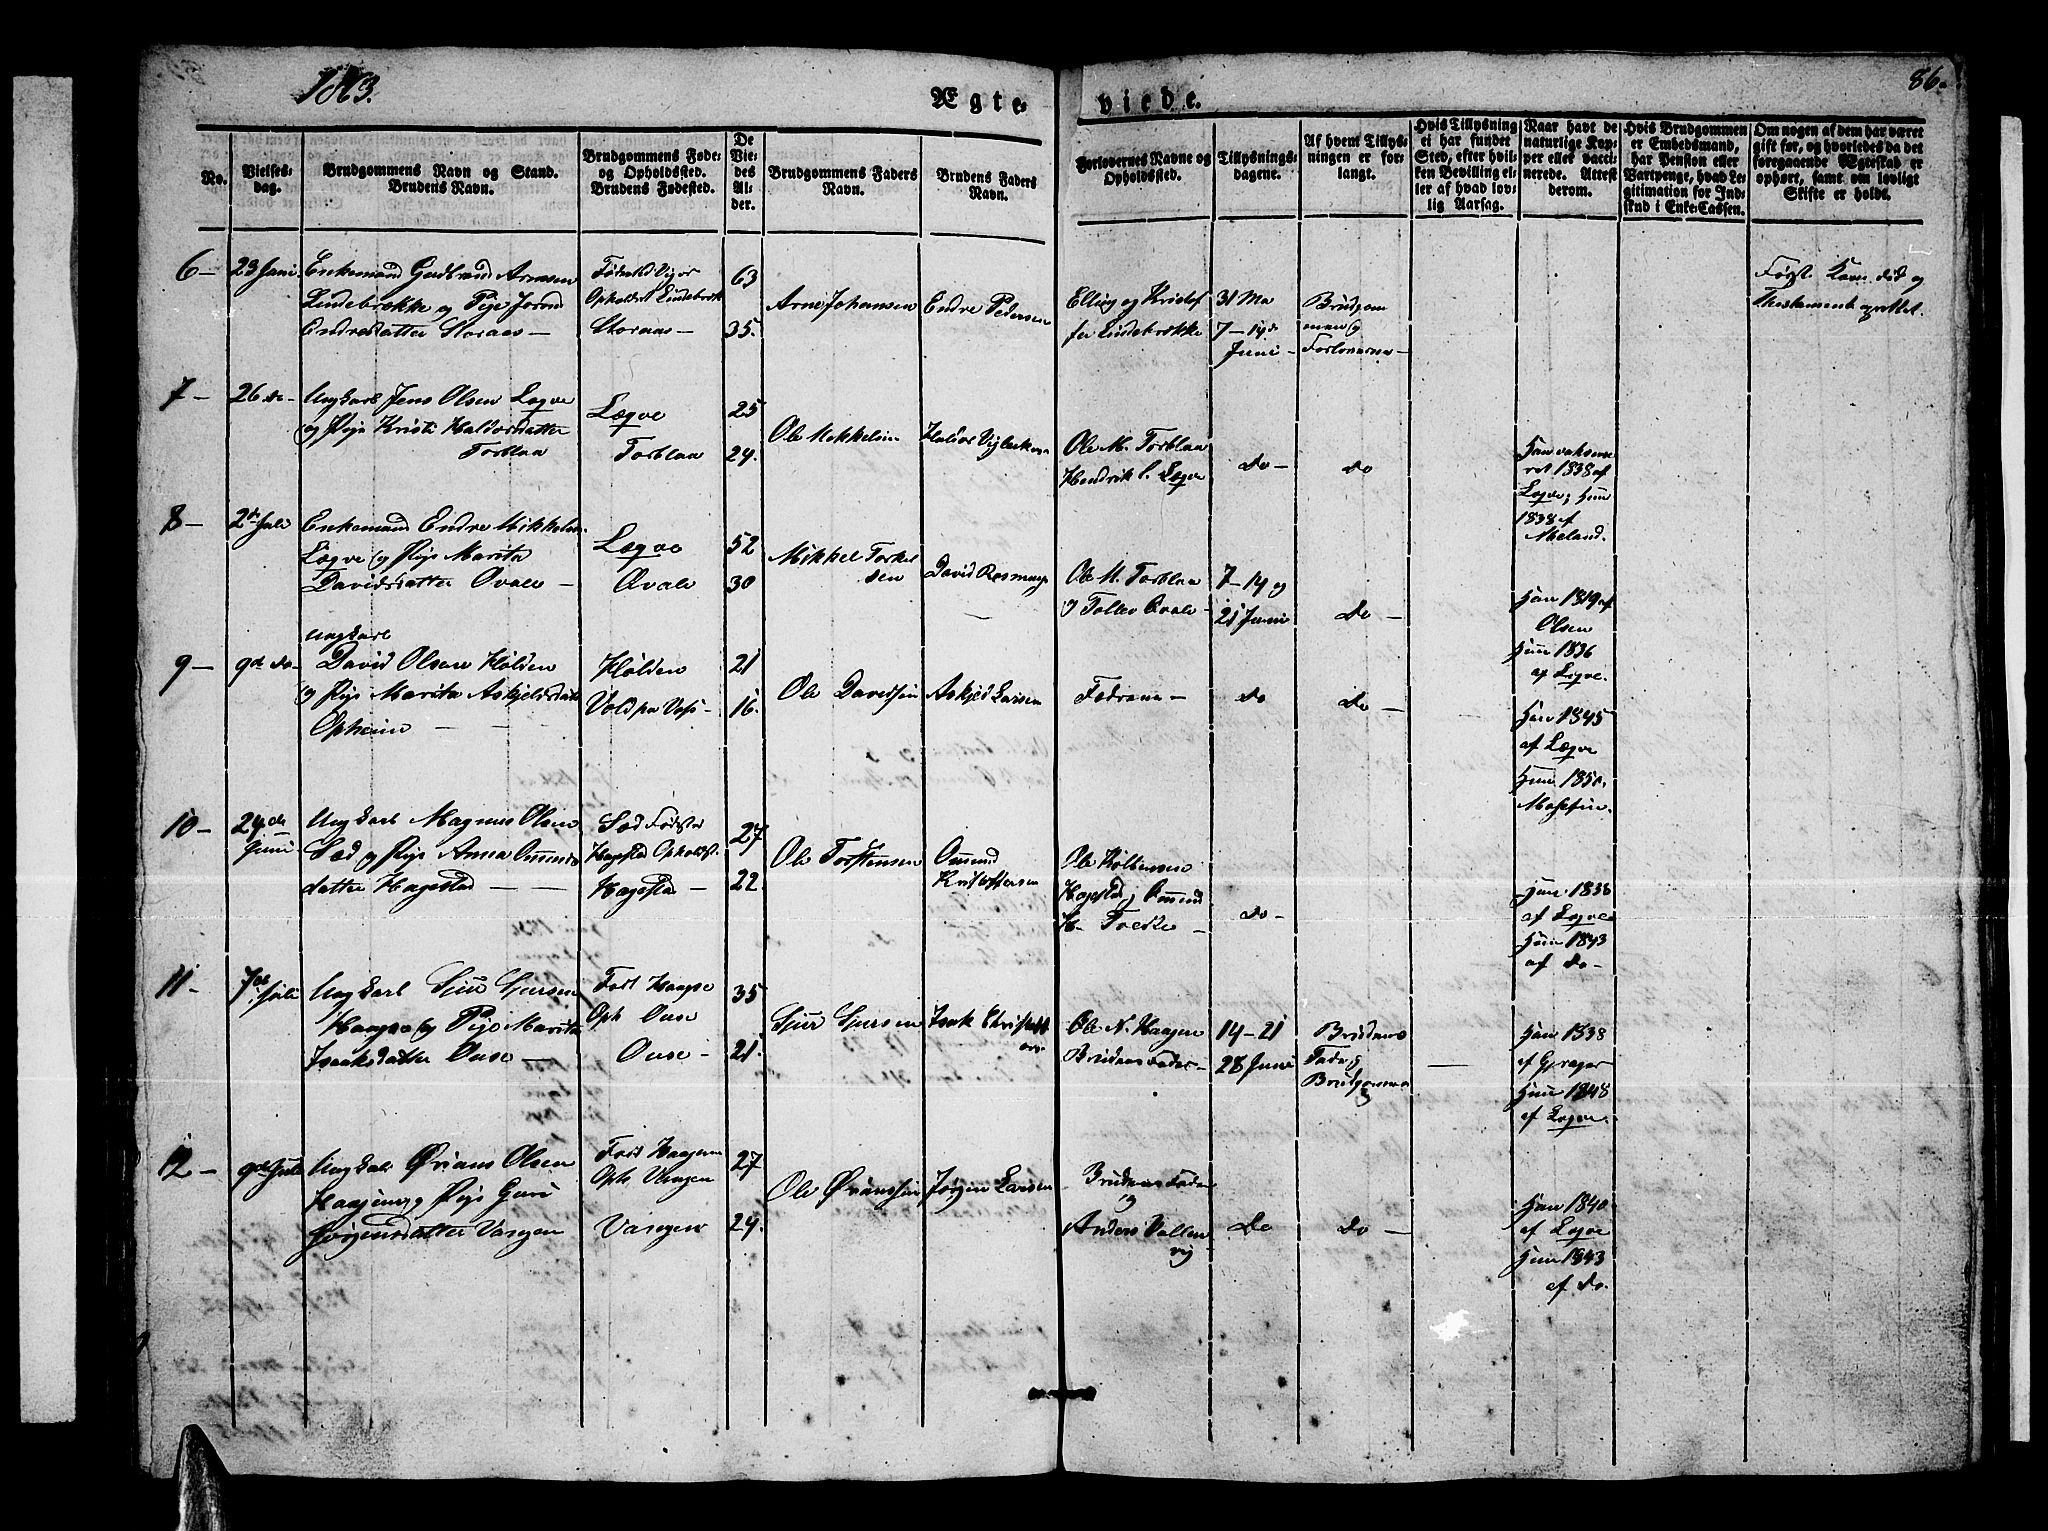 1863.
Ægte
viede.
86.
No.
Vielses-
dag.
Brudgommens Navn og Stand.
Brudens Navn.
Brudgommens Føde-
og Opholdssted.
Brudens Fødested.
De
Vie-
des
Al-
der.
Brudgommens Faders
Navn.
Brudens Faders
Navn.
Forlovernes Navne og
Opholdssted.
Tillysnings-
dagene.
Af hvem Tillys-
ningen er for-
langt.
Hvis Tillysning
ei har fundet
Sted, efter hvil-
ken Bevilling el-
ler af hvad lov-
lig Aarsag.
Naar havt de
naturlige Kop-
per eller vacci-
nerede. Attest
derom.
Hvis Brudgommen
er Embedsmand,
har Pension eller
Vartpenge, hvad Le-
gitimation for Ind-
skud i Enke-Cassen.
Om nogen af dem har været
gift før, og hvorledes da det
foregaaende Ægteskab er
ophørt, samt om lovligt
Skifte er holdt.
6 -
23 Juni
Enkemand Gudbrand Arnesen
Lindebrække og Pige
Endresdatter Storaas -
Storaas -
63
35.
Arne Johansen
Endre Pedersen
Elling og Kristof
fer Lindebrække
31 Ma
7 - 14de
Juni -
Brudgom
men og
Forloverne -
7 -
26 de -
Ungkarl Jens Olsen Lægve
og Pige Kristi Haldorsdatter
Torblaa
Lægve
Torblaa
25
24.
Ole Mikkelsen
Ole M. Torblaa
Hendrik L. Lægve
do -
do
Han
1838 af
Lægve; Hun
1838 af
Meland.
8 -
2den Juli
Enkemand Endre Mikkelsen
Lægve og Pige Marita
Davidsdatter Ovale -
Lægve
Ovale
52
30
Mikkel Torkel
sen
David
Ole M. Torblaa
og Tollev Ovale -
7 - 14 og
21 Juni
Do -
Han 1819 af
Olsen
Hun 1836
af Lægve.
9 -
9de do
Ungkarl
David Olsen Hølden
og Pige Marita Askjelsdatter
Opheim - -
Hølden
Vold paa Voss -
21
16.
Ole Davidsen
Askjel Larsen
Fædrene -
do
Do -
Han 1845
af Lægve
Hun 1850.
10 -
24de
Juni
Ungkarl Magnus Olsen
Sæd og Pige Anna Omunds
datter Hagestad - -
Sæd Fødested
Hagestad Opholdst.
Hagestad -
27
22.
Ole Torstensen
Omund
Kristoffersen
Hagestad og Omund
do -
Han 1838
af Lægve
Hun 1843
af do -
11 -
7de Juli
Ungkarl Sjur Sjursen
og Pige Marita
Isaksdatter Ouse -
Oph Ouse
Ouse -
35
21.
Sjur Sjursen
Isak Christoff
ers -
Ole N. Haagen
Brudens Fader -
14 - 21
28 Juni
Brudens
Fader og
Brudgommen
Han 1838
Hun 1848
af Lægve.
12 -
9de Juli
Ungkarl Ørians Olsen
og Pige Guri
Jørgensdatter Vangen
Oph Vangen
Vangen
27
24.
Ole Øriansen
Jørgen Larsen
Brudens Fader
og
Anders Vallen
vig -
Do
Do -
Han 1840
af Lægve
Hun 1843
af do.